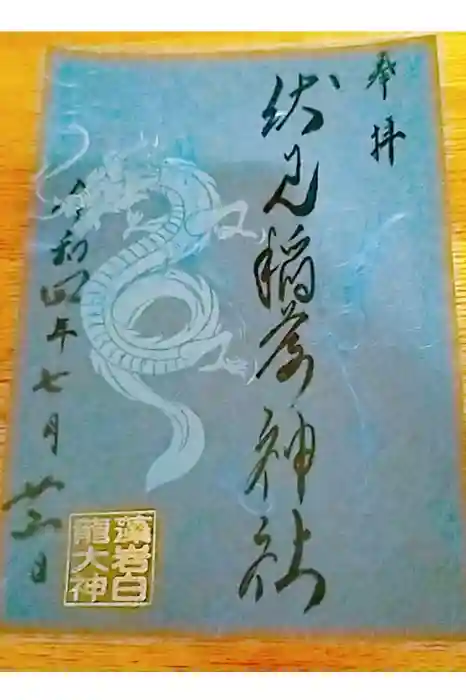 奉拝
伏見稲荷神社
令和四年七月廿五日
藻岩白
龍大神